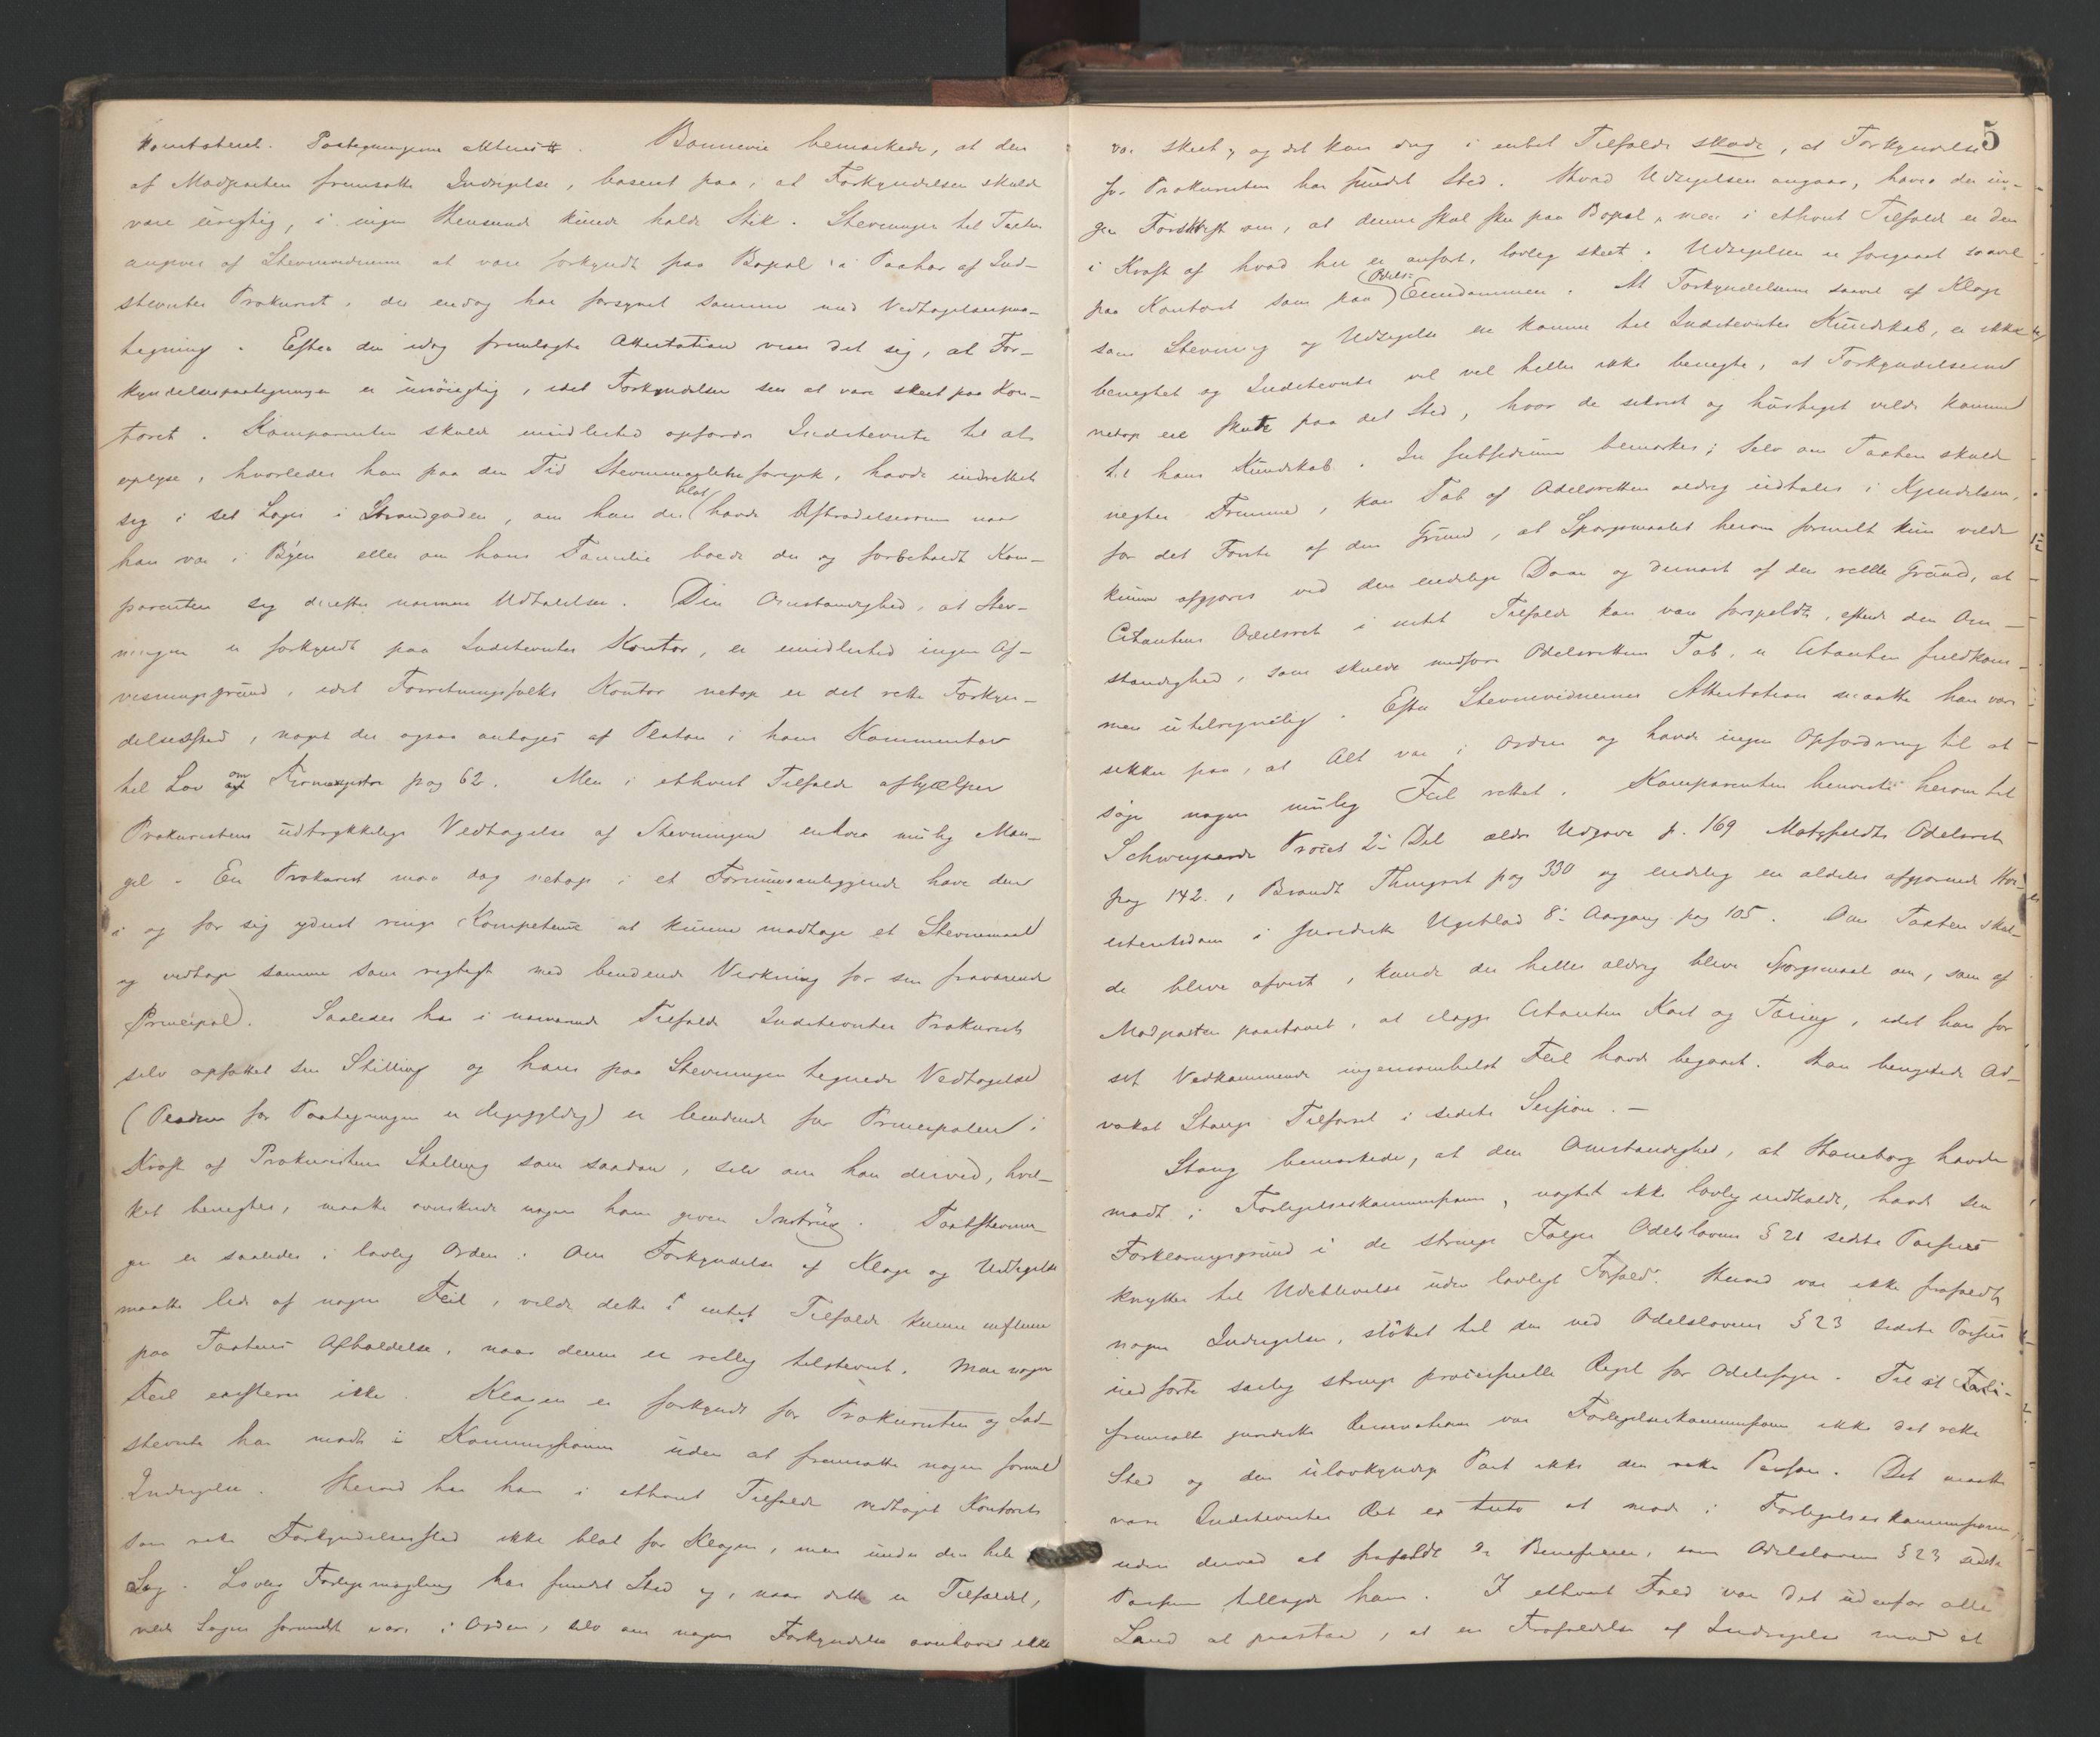 Kontoret. Paategningerne akteres. Bonnevie bemærkede, at den
af Modparten fremsatte Indsigelse, baseret paa, at Forkyndelsen skulde
være urigtig, i ingen Henseende kunde holde Stik. Stevningen til Takten
angives af Stevnevidnerne at være forkyndt paa Bopæl i Paahør af Ind-
stevntes Prokurist, der endog har forsynet samme med Vedtagelsespaa-
tegning. Efter den idag fremlagte Attestation viser det sig, at For-
kyndelsespaategningen er unøiagtig, idet Forkyndelsen sees at være skeet paa Kon-
toret. Komparenten skulde imidlertid opfordre Indstevnte til at
oplyse, hvorledes han paa den Tid Stevnemaalet foregik, havde indrettet
sig i sit Loger i Strandgaden, om han der blot havde Aftrædelsesrum naar
han var i Byen eller om hans Familie boede der og forbeholdt Kom-
parenten sig derefter nærmere Udtalelser. Den Omstændighed, at Stev-
ningen er forkyndt paa Indstevntes Kontor, er imidlertid ingen Af-
visningsgrund, idet Forretningsfolks Kontor netop er det rette Forkyn-
delsessted, noget der ogsaa antages af Platou i hans Kommentar
til Lov om Firmaregistre pag 62. Men i ethvert Tilfælde afhjælper
Prokuristens udtrykkelige Vedtagelse af Stevningen enhver mulig Man-
gel. En Prokurist maa dog netop i et Formuesanliggende have den
i og for sig yderst ringe Kompetence at kunne modtage et Stevnemaal
og vedtage samme som rigtigt med bindende Virkning for sin fraværende
Principal. Saaledes har i nærværende Tilfælde Indstevntes Prokurist
selv opfattet sin Stilling og hans paa Stevningen tegnede Vedtagelse
( for Paategningen er ligegyldig) er bindende for Principalen i
Kraft af Prokuristens Stilling som saadan, selv om han derved, hvil-
ket benegtes, maatte overskride nogen ham given Instrux. Taktstevnin-
gen er saaledes i lovlig Orden. Om Forkyndelse af Klage og Udsigelse
maatte lide af nogen Feil, vilde dette i intet Tilfælde kunne influere
paa Taktens Afholdelse, naar denne er rettelig tilstevnt. Men nogen
Feil existerer ikke. Klagen er forkyndt for Prokuristen og Ind-
stevnte har mødt i Kommissionen uden at fremsætte nogen formel
Indsigelse. Herved har han i ethvert Tilfælde vedtaget Kontoret
som rette Forkyndelsessted ikke blot for Klagen, men under den hele
Sag. Lovlig Forligsmægling har fundet Sted og, naar dette er Tilfældet,
vilde Sagen forsaavidt være i Orden, selv om nogen Forkyndelse overhoved ikke
5
var skeet, og det kan dog i intet Tilfælde skade, at Forkyndelse
for Prokuristen har fundet Sted. Hvad Udsigelsen angaar, haves der in-
gen Forskrift om, at denne skal ske paa Bopæl, men i ethvert Tilfælde er den
i Kraft af hvad her er anført, lovlig skeet. Udsigelsen er foregaaet saavel
paa Kontoret som paa Odels-Eiendommen. At Forkyndelserne saavel af Klage
som Stevning og Udsigelse ere komne til Indstevntes Kundskab, er ikke
benegtet og Indstevnte vil vel heller ikke benegte, at Forkyndelserne
netop ere skeede paa det Sted, hvor de sikrest og hurtigst vilde komme
til hans Kundskab. In subsidium bemærkes: Selv om Takten skulde
negtes Fremme, kan Tab af Odelsretten aldrig udtales i Kjendelsen,
for det Første af den Grund, at Spørgsmaalet herom formelt kun vilde
kunne afgjøres ved den endelige Dom og dernæst af den reelle Grund, at
Citantens Odelsret i intet Tilfælde kan være forspildt, efterdi den Om-
stændighed, som skulde medføre Odelsrettens Tab, er Citanten fuldkom-
men utilregnelig. Efter Stevnevidnernes Attestation maatte han være
sikker paa, at Alt var i Orden og havde ingen Opfordring til at
søge nogen mulig Feil rettet. Komparenten henviste herom til
Schweigaards Proces 2den Del ældre Udgave p. 169 Motzfeldts Odelsret
pag 142., Brandts Thingsret pag 330 og endelig en aldeles afgjørende Høi-
esteretsdom i Juridisk Ugeblad 8de Aargang pag 105. Om Takten skul-
de blive afvist, kunde der heller aldrig blive Spørgsmaal om, som af
Modparten paastaaet, at ilægge Citanten Kost og Tæring, idet han for
sit Vedkommende ingensomhelst Feil havde begaaet. Han benegtede Ad-
vokat Stangs Tilførsel i sidste Session. —
Stang bemærkede, at den Omstændighed, at Haneborg havde
mødt i Forligelseskommissionen, uagtet ikke lovlig indkaldt, havde sin
Forklaringsgrund i de strenge Følger Odelslovens § 21 sidste Passus
knytter til Udeblivelse uden lovligt Forfald. Herved var ikke frafaldt
nogen Indsigelse, støttet til den ved Odelslovens § 23 sidste Passus
indførte særlig strenge processuelle Regel for Odelssager. Til at
fremsætte juridiske Reservationer var Forligelseskommissionen ikke det rette
Sted og den ulovkyndige Part ikke den rette Person. Det maatte
være Indstevntes Ret ex tuto at møde i Forligelseskommissionen,
uden derved at frafalde de Beneficier, som Odelslovens § 23 sidste
Passus tillagde ham. I ethvert Fald var det udenfor alle
Land at paastaa, at en Frafaldelse af Indsigelse mod et